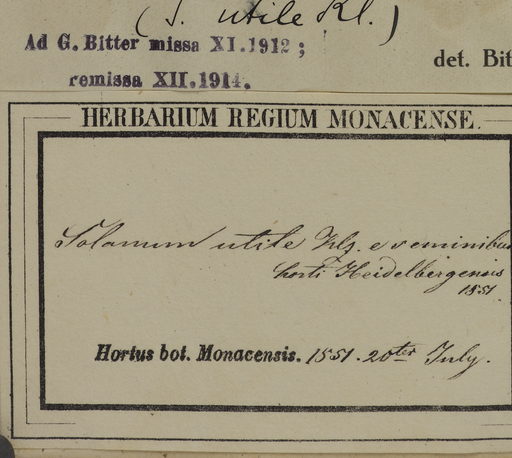 (S. utile Kl.)
Ad G. Bitter missa XI.1912;
remissa XII.1914.
det. Bit
HERBARIUM REGIUM MONACENSE.
Solanum utile Klz. e seminibus
horti Heidelbergensis
1851
Hortus bot. Monacensis. 1851. 20ter July.